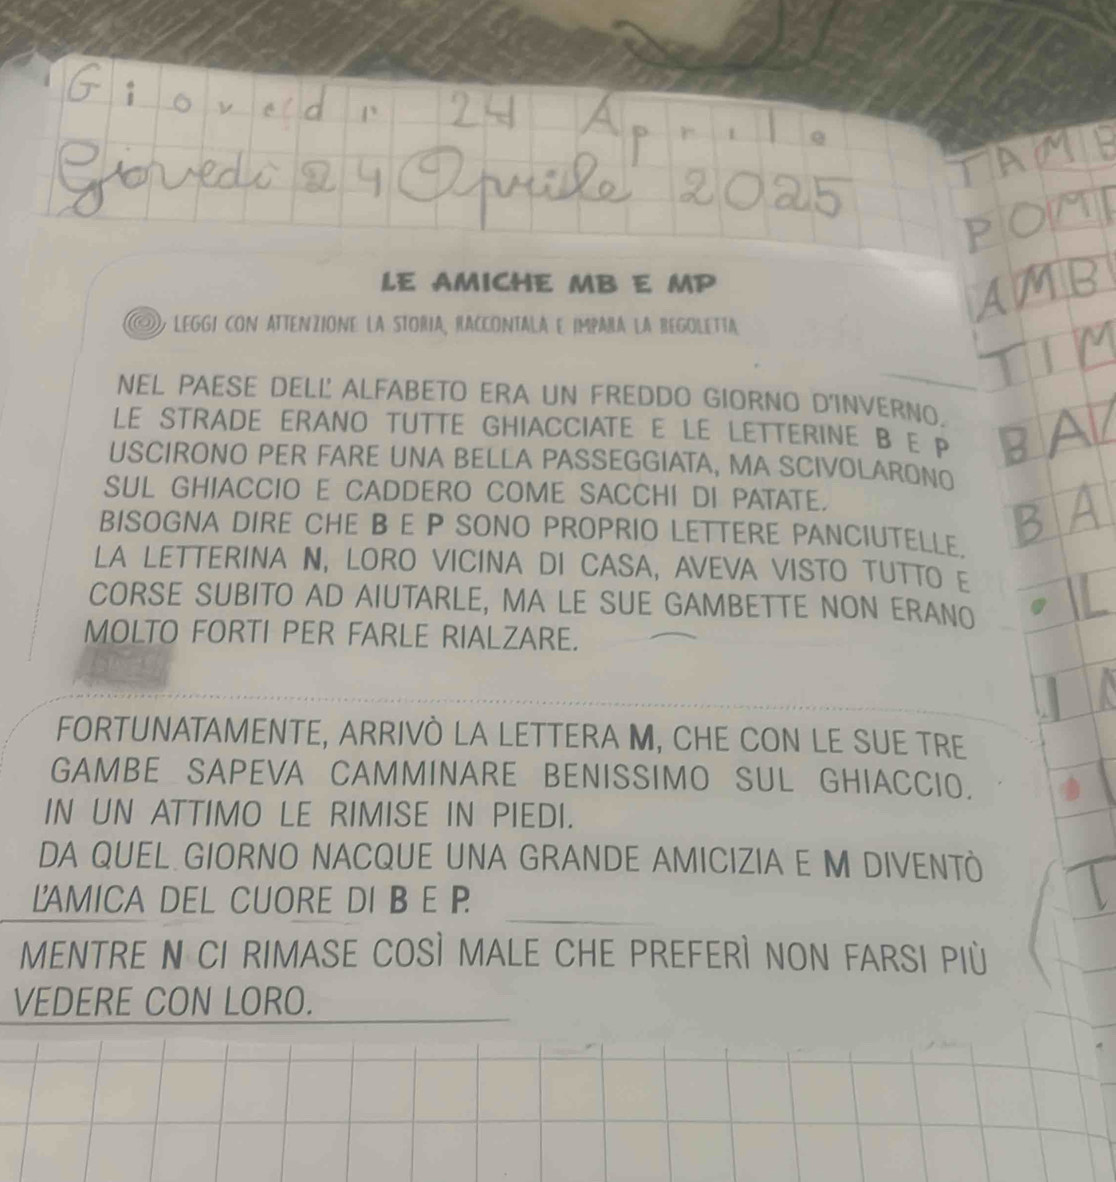 Giovedì 24 Aprile
Giovedì 24 Aprile 2025
LE AMICHE MB E MP
LEGGI CON ATTENZIONE LA STORIA, RACCONTALA E IMPARA LA REGOLETTA
NEL PAESE DELL' ALFABETO ERA UN FREDDO GIORNO D'INVERNO.
LE STRADE ERANO TUTTE GHIACCIATE E LE LETTERINE B E P
USCIRONO PER FARE UNA BELLA PASSEGGIATA, MA SCIVOLARONO
SUL GHIACCIO E CADDERO COME SACCHI DI PATATE.
BISOGNA DIRE CHE B E P SONO PROPRIO LETTERE PANCIUTELLE.
LA LETTERINA N, LORO VICINA DI CASA, AVEVA VISTO TUTTO E
CORSE SUBITO AD AIUTARLE, MA LE SUE GAMBETTE NON ERANO
MOLTO FORTI PER FARLE RIALZARE.
FORTUNATAMENTE, ARRIVÒ LA LETTERA M, CHE CON LE SUE TRE
GAMBE SAPEVA CAMMINARE BENISSIMO SUL GHIACCIO.
IN UN ATTIMO LE RIMISE IN PIEDI.
DA QUEL GIORNO NACQUE UNA GRANDE AMICIZIA E M DIVENTÒ
L'AMICA DEL CUORE DI B E P.
MENTRE N CI RIMASE COSÌ MALE CHE PREFERÌ NON FARSI PIÙ
VEDERE CON LORO.
TAMB
POMP
AMB
TIM
BA
IL